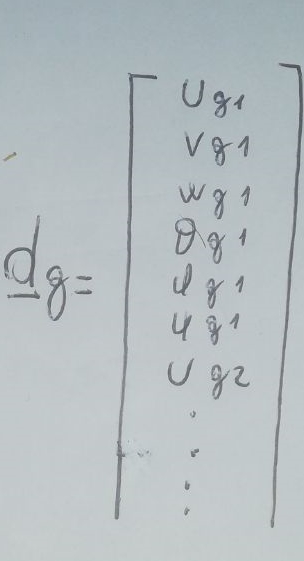 d g =
U g1
V g1
w g1
θ g1
φ g1
ψ g1
U g2
.
.
.
.